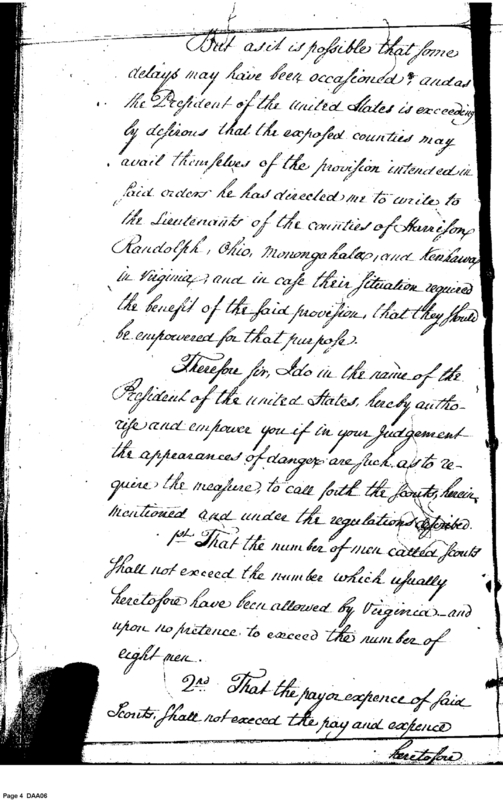 But as it is possible that some
delays may have been occasioned, and as
the President of the united States is exceeding
by desirous that the exposed counties may
avail themselves of the provision intended in
said orders he has directed me to write to
the Lieutenants of the counties of Harrison,
Randolph, Ohio, Monongahala, and Kenhawa,
in Virginia, and in case their situation required
the benefit of the said provision, that they should
be empowered for that purpose.
Therefore sir, I do in the name of the
President of the united States, hereby autho-
rise and empower you if in your Judgement
the appearances of danger are such as to re-
quire the measure, to call forth the scouts, herein
mentioned and under the regulations
1st That the number of men called Scouts
shall not exceed the number which usually
heretofore have been allowed by Virginia - and
upon no pretence to exceed the number of
eight men.
2nd That the pay or expence of said
Scouts, shall not exceed the pay and expence
heretofore
Page 4 DAA06